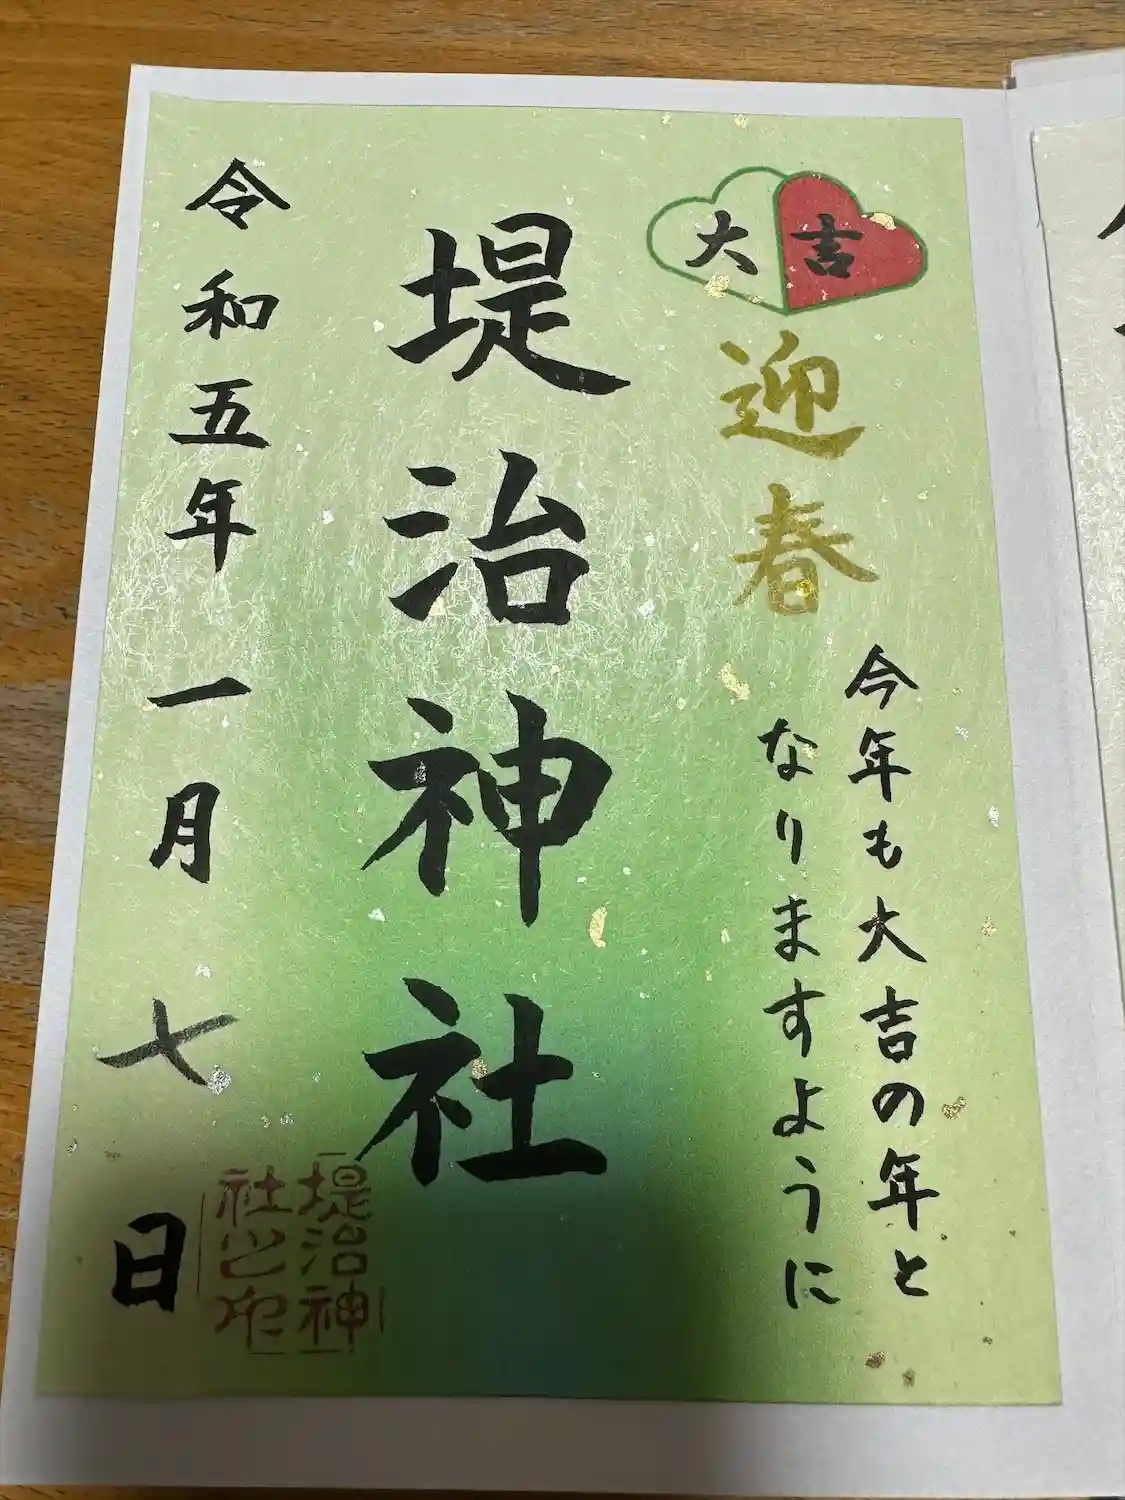 大吉
迎春
今年も大吉の年と
なりますように
堤治神社
令和五年一月七日
堤治神
社之印